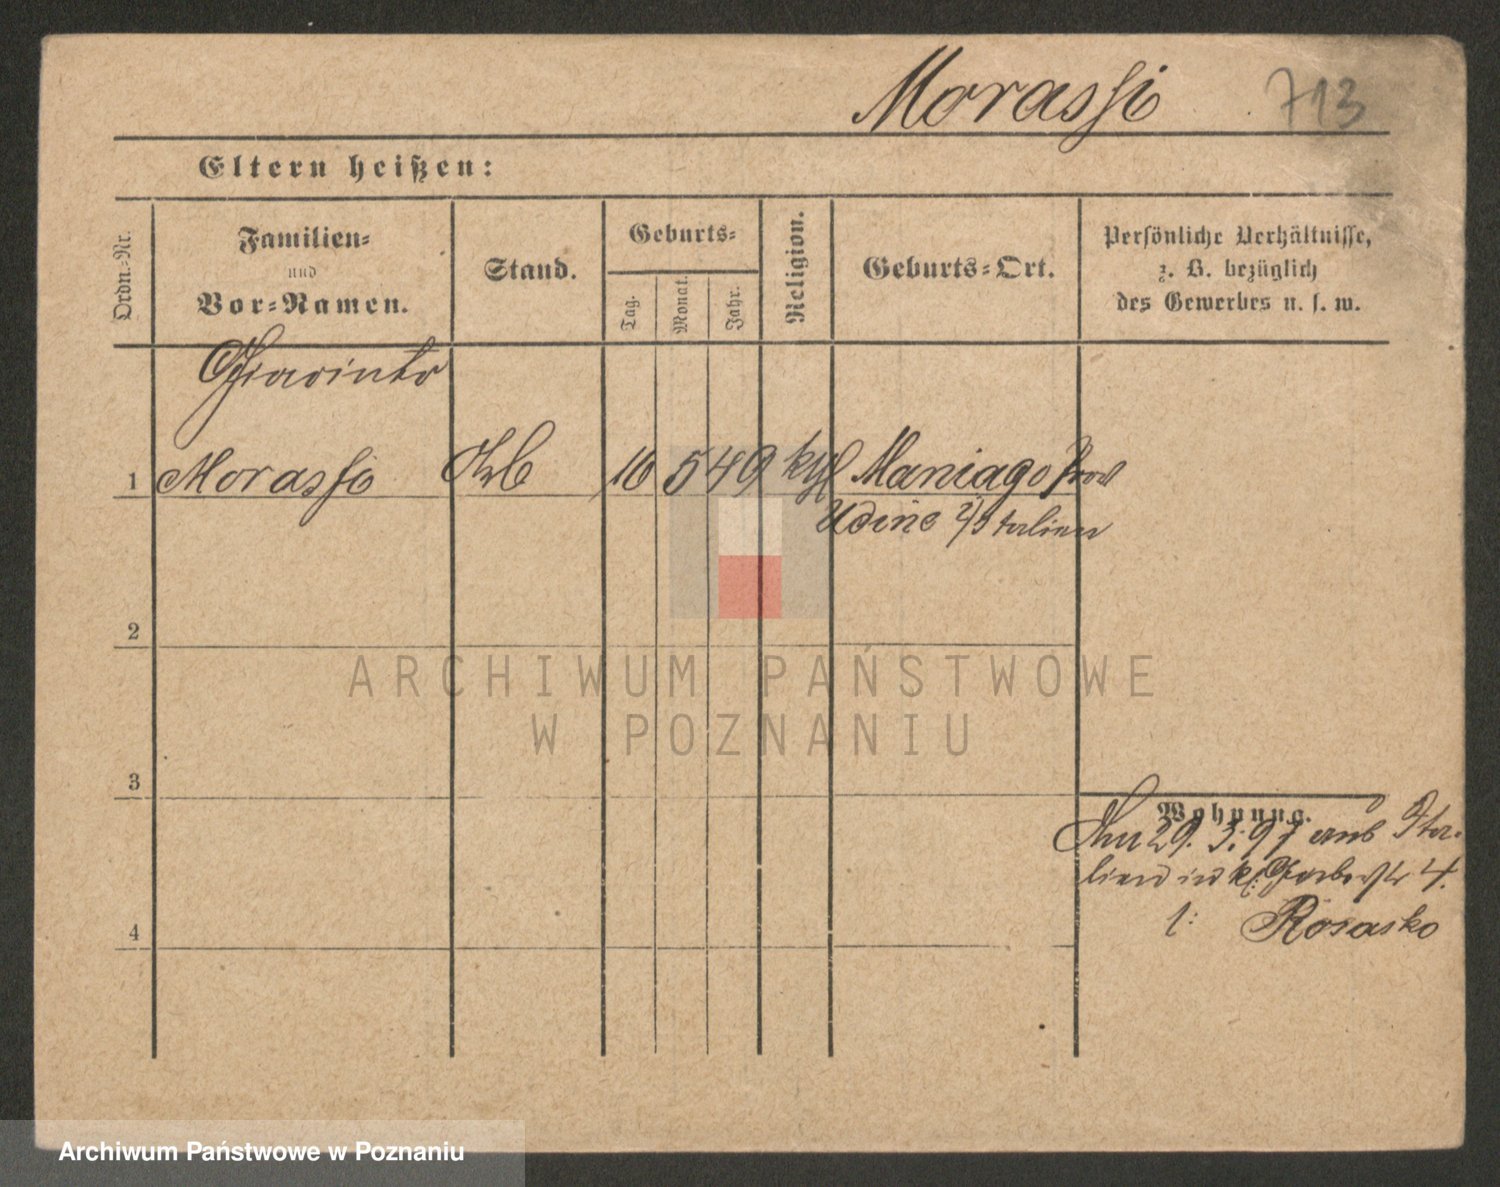 Morassi 713
Eltern heißen:
Ordn.-Nr.
Familien-
und
Vor-Namen.
Stand.
Geburts-
Tag.
Monat.
Jahr.
Religion.
Geburts-Ort.
Persönliche Verhältnisse,
z. B. bezüglich
des Gewerbes u. s. w.
Giacinto
1 Morassi 16 5 49 kth Maniago Prov
Udine i/Italien
2
3
4
Wohnung.
29. 3. 97 aus Ita-
lien in kl. Gerberstr 4.
Rosasko
ARCHIWUM PAŃSTWOWE
W POZNANIU
Archiwum Państwowe w Poznaniu